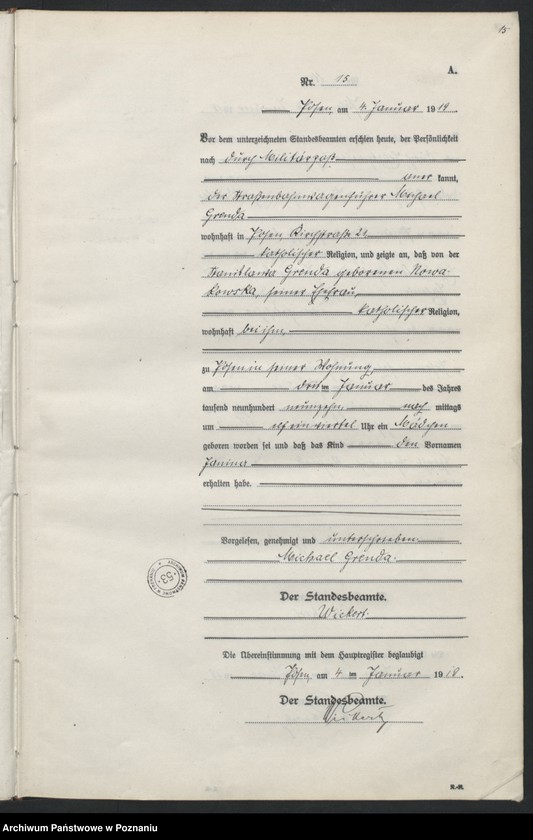 15
A.
Nr. 15
Posen, am 4. Januar 1919
Vor dem unterzeichneten Standesbeamten erschien heute, der Persönlichkeit
nach durch Militärpaß
aner kannt,
der Straßenbahnwagenführer Michael
Grenda
wohnhaft in Posen,
katholischer Religion, und zeigte an, daß von der
Stanislawa Grenda geborenen Nowa-
kowska, seiner Ehefrau,
katholischer Religion,
wohnhaft bei ihm,
zu Posen in seiner Wohnung
am drit m Januar des Jahres
tausend neunhundert neunzehn nach mittags
um elf einviertel Uhr ein Mädchen
geboren worden sei und daß das Kind den Vornamen
Janina
erhalten habe.
Vorgelesen, genehmigt und unterschrieben.
Michael Grenda.
Der Standesbeamte.
Wickert.
Die Übereinstimmung mit dem Hauptregister beglaubigt
Posen, am 4 ten Januar 1919.
Der Standesbeamte.
ARCHIWUM PAŃSTWOWE W POZNANIU
53
H.-M.
Archiwum Państwowe w Poznaniu